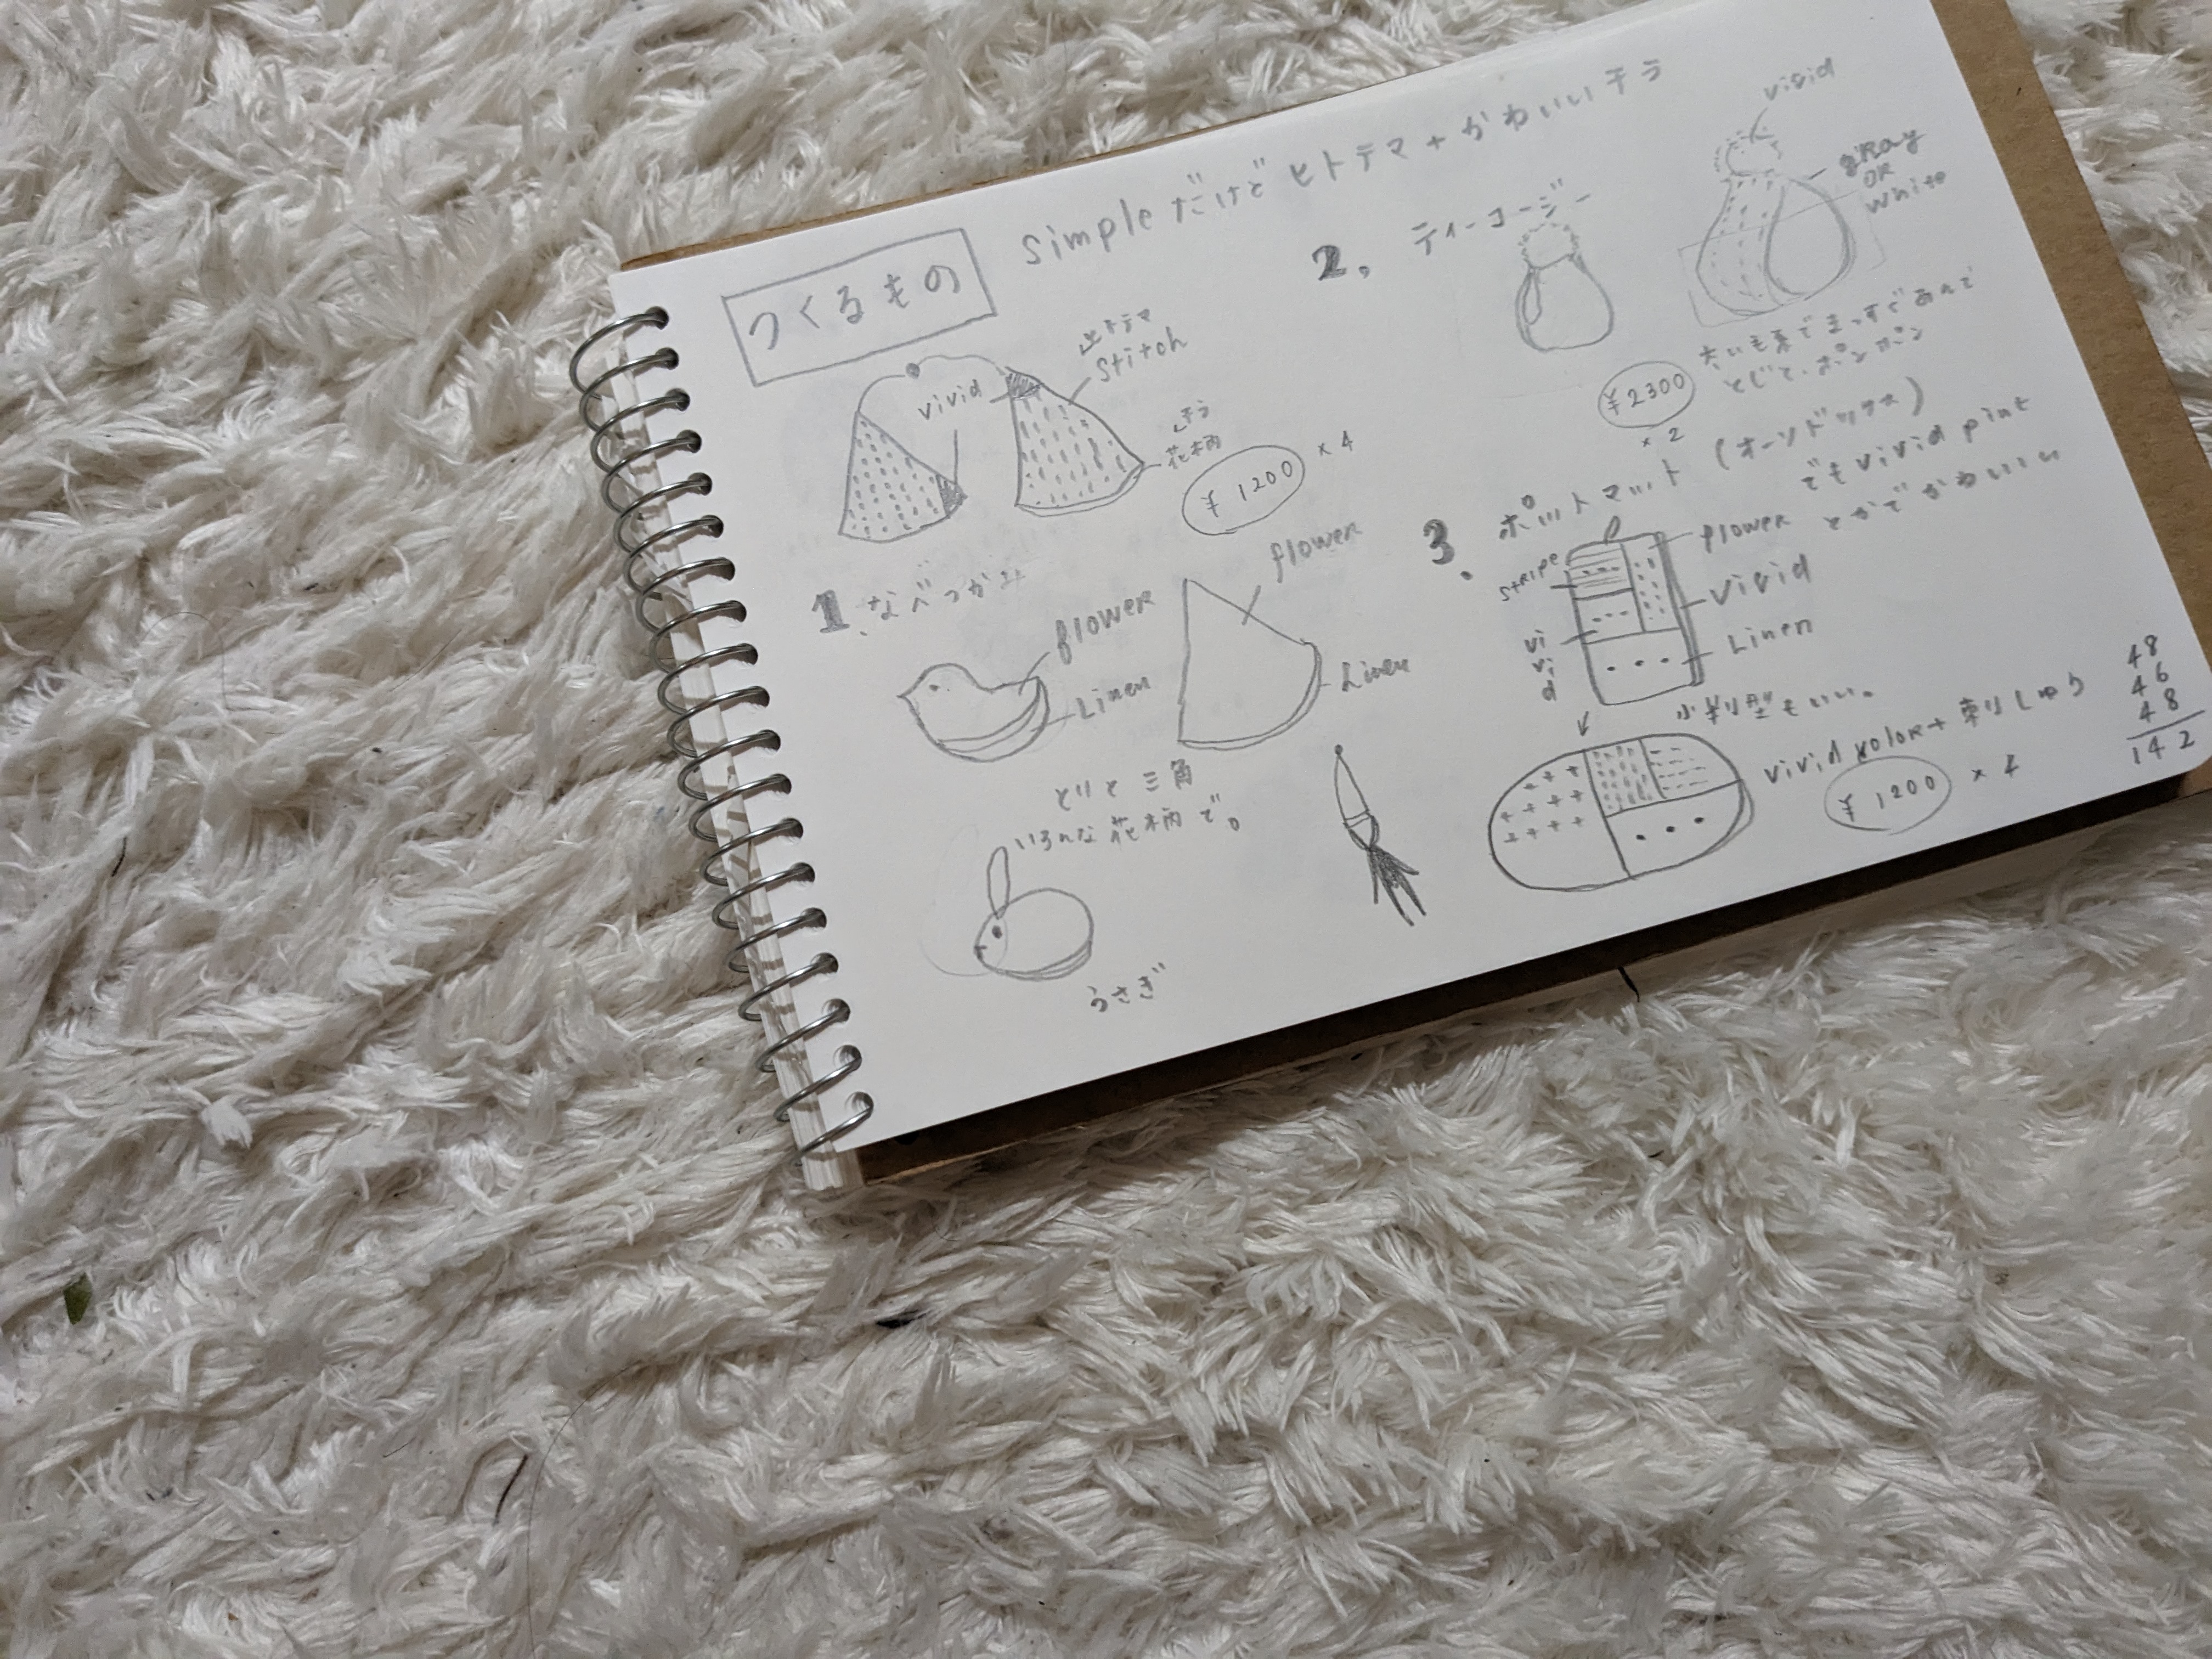 つくるもの
simpleだけど ヒトテマ+かわいいチラ
vivid
ヒトテマ
stitch
チラ
花柄
¥1200 ×4
1. なべつかみ
flower
Linen
flower
Linen
とりと三角
いろんな花柄で。
うさぎ
2. ティーコージー
vivid
gray
OR
white
太い毛糸でまっすぐあんで
とじて、ポンポン
¥2300
×2
3. ポットマット (オーソドックス)
でもvivid pint
とかでかわいい
stripe
flower
vivid
vivid
Linen
小判型もいい。
vivid xolor+刺しゅう
¥1200 ×4
48
46
48
142